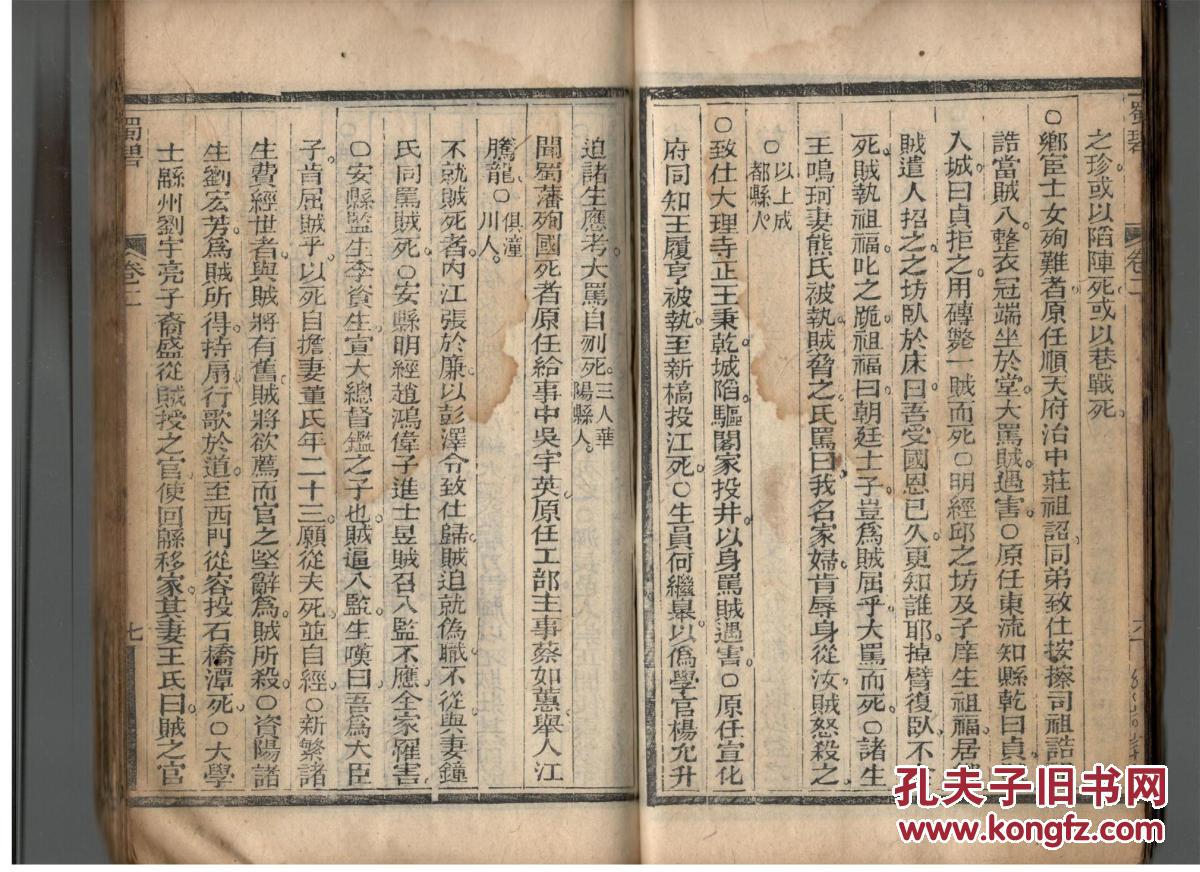 蜀碧 卷二
之珍或以陷陣死或以巷戰死
○鄉宦士女殉難者原任順天府治中莊祖詔同弟致仕按擦司祖誥
誥當賊入整衣冠端坐於堂大罵賊遇害○原任東流知縣乾曰貞
入城曰貞拒之用磚斃一賊而死○明經邱之坊及子庠生祖福居
賊遣人招之之坊臥於床曰吾受國恩已久更知誰耶掉臂復臥不
死賊執祖福叱之跪祖福曰朝廷士子豈爲賊屈乎大罵而死○諸生
王鳴珂妻熊氏被執賊脅之氏罵曰我名家婦肯辱身從汝賊怒殺之
○以上成
都縣人
○致仕大理寺正王秉乾城陷驅閤家投井以身罵賊遇害○原任宣化
府同知王履亨被執至新槁投江死○生員何繼皋以僞學官楊允升
迫諸生應考大罵自刎死三人華
陽縣人
聞蜀藩殉國死者原任給事中吳宇英原任工部主事蔡如蕙舉人江
騰龍○俱潼
川人
不就賊死者內江張於廉以彭澤令致仕歸賊迫就偽職不從與妻鐘
氏同罵賊死○安縣明經趙鴻偉子進士昱賊召入監不應全家罹害
○安縣監生李資生宣大總督鑑之子也賊逼入監生嘆曰吾爲大臣
子肯屈賊乎以死自擔妻董氏年二十三願從夫死並自經○新繁諸
生費經世者與賊將有舊賊將欲薦而官之堅辭爲賊所殺○資陽諸
生劉宏芳爲賊所得持扇行歌於道至西門從容投石橋潭死○大學
士緜州劉宇亮子裔盛從賊授之官使回緜移家其妻王氏曰賊之官
蜀碧 卷二 七
孔夫子旧书网
www.kongfz.com